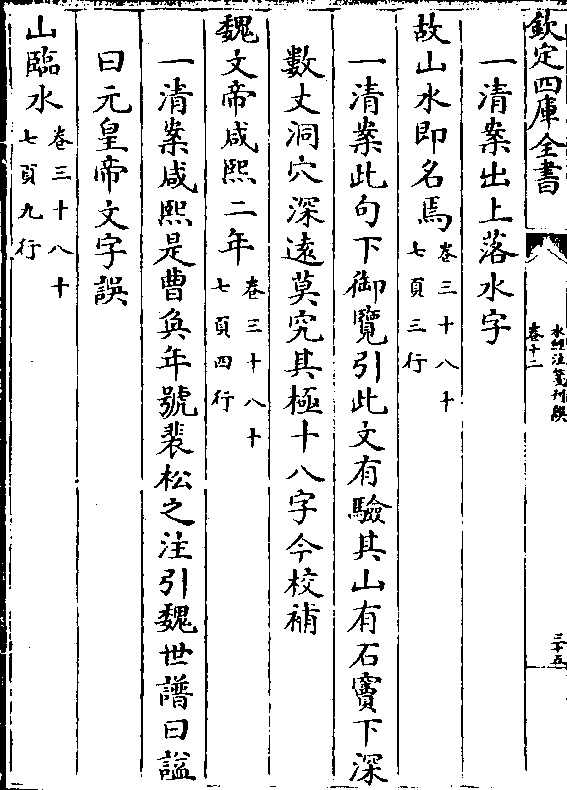 欽定四庫全書
水經注箋刊誤
卷十二
三十五
一清案出上落水字
故山水即名焉卷三十八十七頁三行
一清案此句下御覽引此文有驗其山有石竇下深
數丈洞穴深遠莫究其極十八字今校補
魏文帝咸熙二年卷三十八十七頁四行
一清案咸熙是曹奐年號裴松之注引魏世譜曰諡
曰元皇帝文字誤
山臨水卷三十八十七頁九行